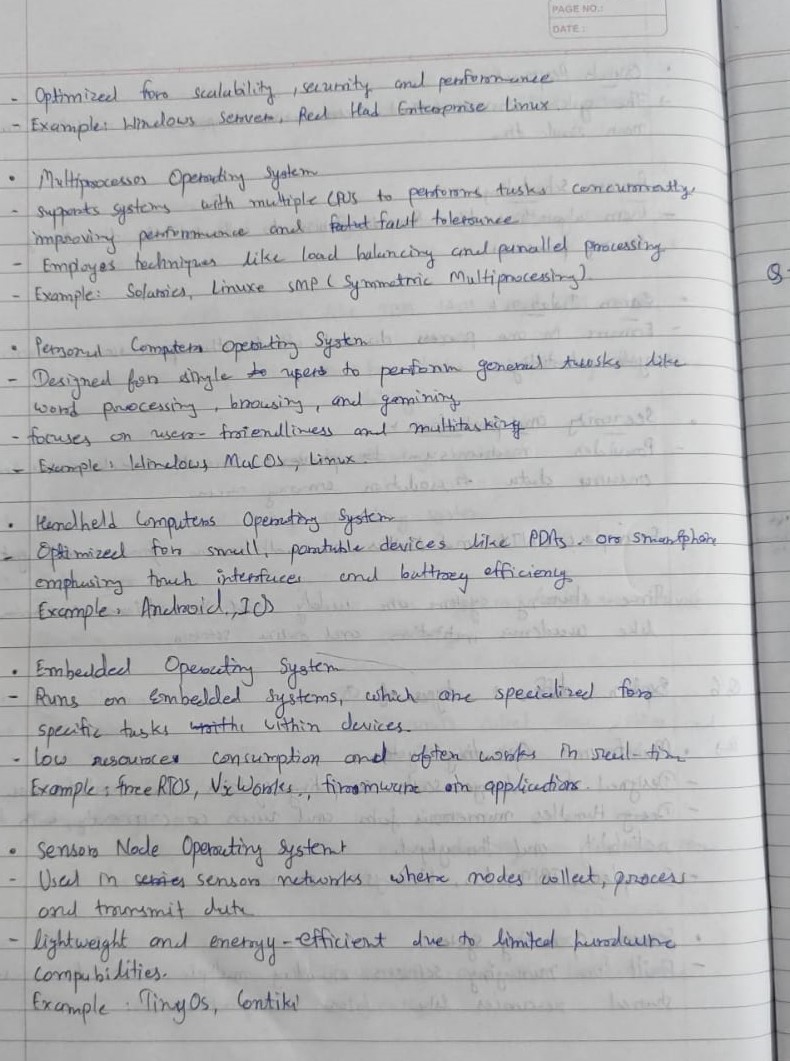 PAGE NO.:
DATE:
- Optimized for scalability, security and performance
- Example: Windows Server, Red Had Enterprise Linux
• Multiprocessor Operating System
- supports systems with multiple CPUs to performs tasks concurrently,
improving performance and fault tolerance
- Employes techniques like load balancing and parallel processing
- Example: Solarics, Linuxe SMP (Symmetric Multiprocessing).
• Personal Computer Operating System
- Designed for single users to perform general tasks like
word processing, browsing, and gamining
- focuses on user-friendliness and multitasking
- Example: Windows MacOS, Linux.
• Handheld Computers Operating System
- Optimized for small, portable devices like PDAs. or smartphon
emphasing touch interfaces and battrey efficieny
Example: Android, IOS
• Embedded Operating System
- Runs on Embedded systems, which are specialized for
specific tasks within devices.
- low resources consumption and often works in real-time
Example: free RTOS, VxWorks, firmware on applications.
• Sensor Node Operating System
- Used in sensor networks where nodes collect, process
and transmit data
- lightweight and energy-efficient due to limited hardware
compabilities.
Example: TinyOs, Contiki
Q.